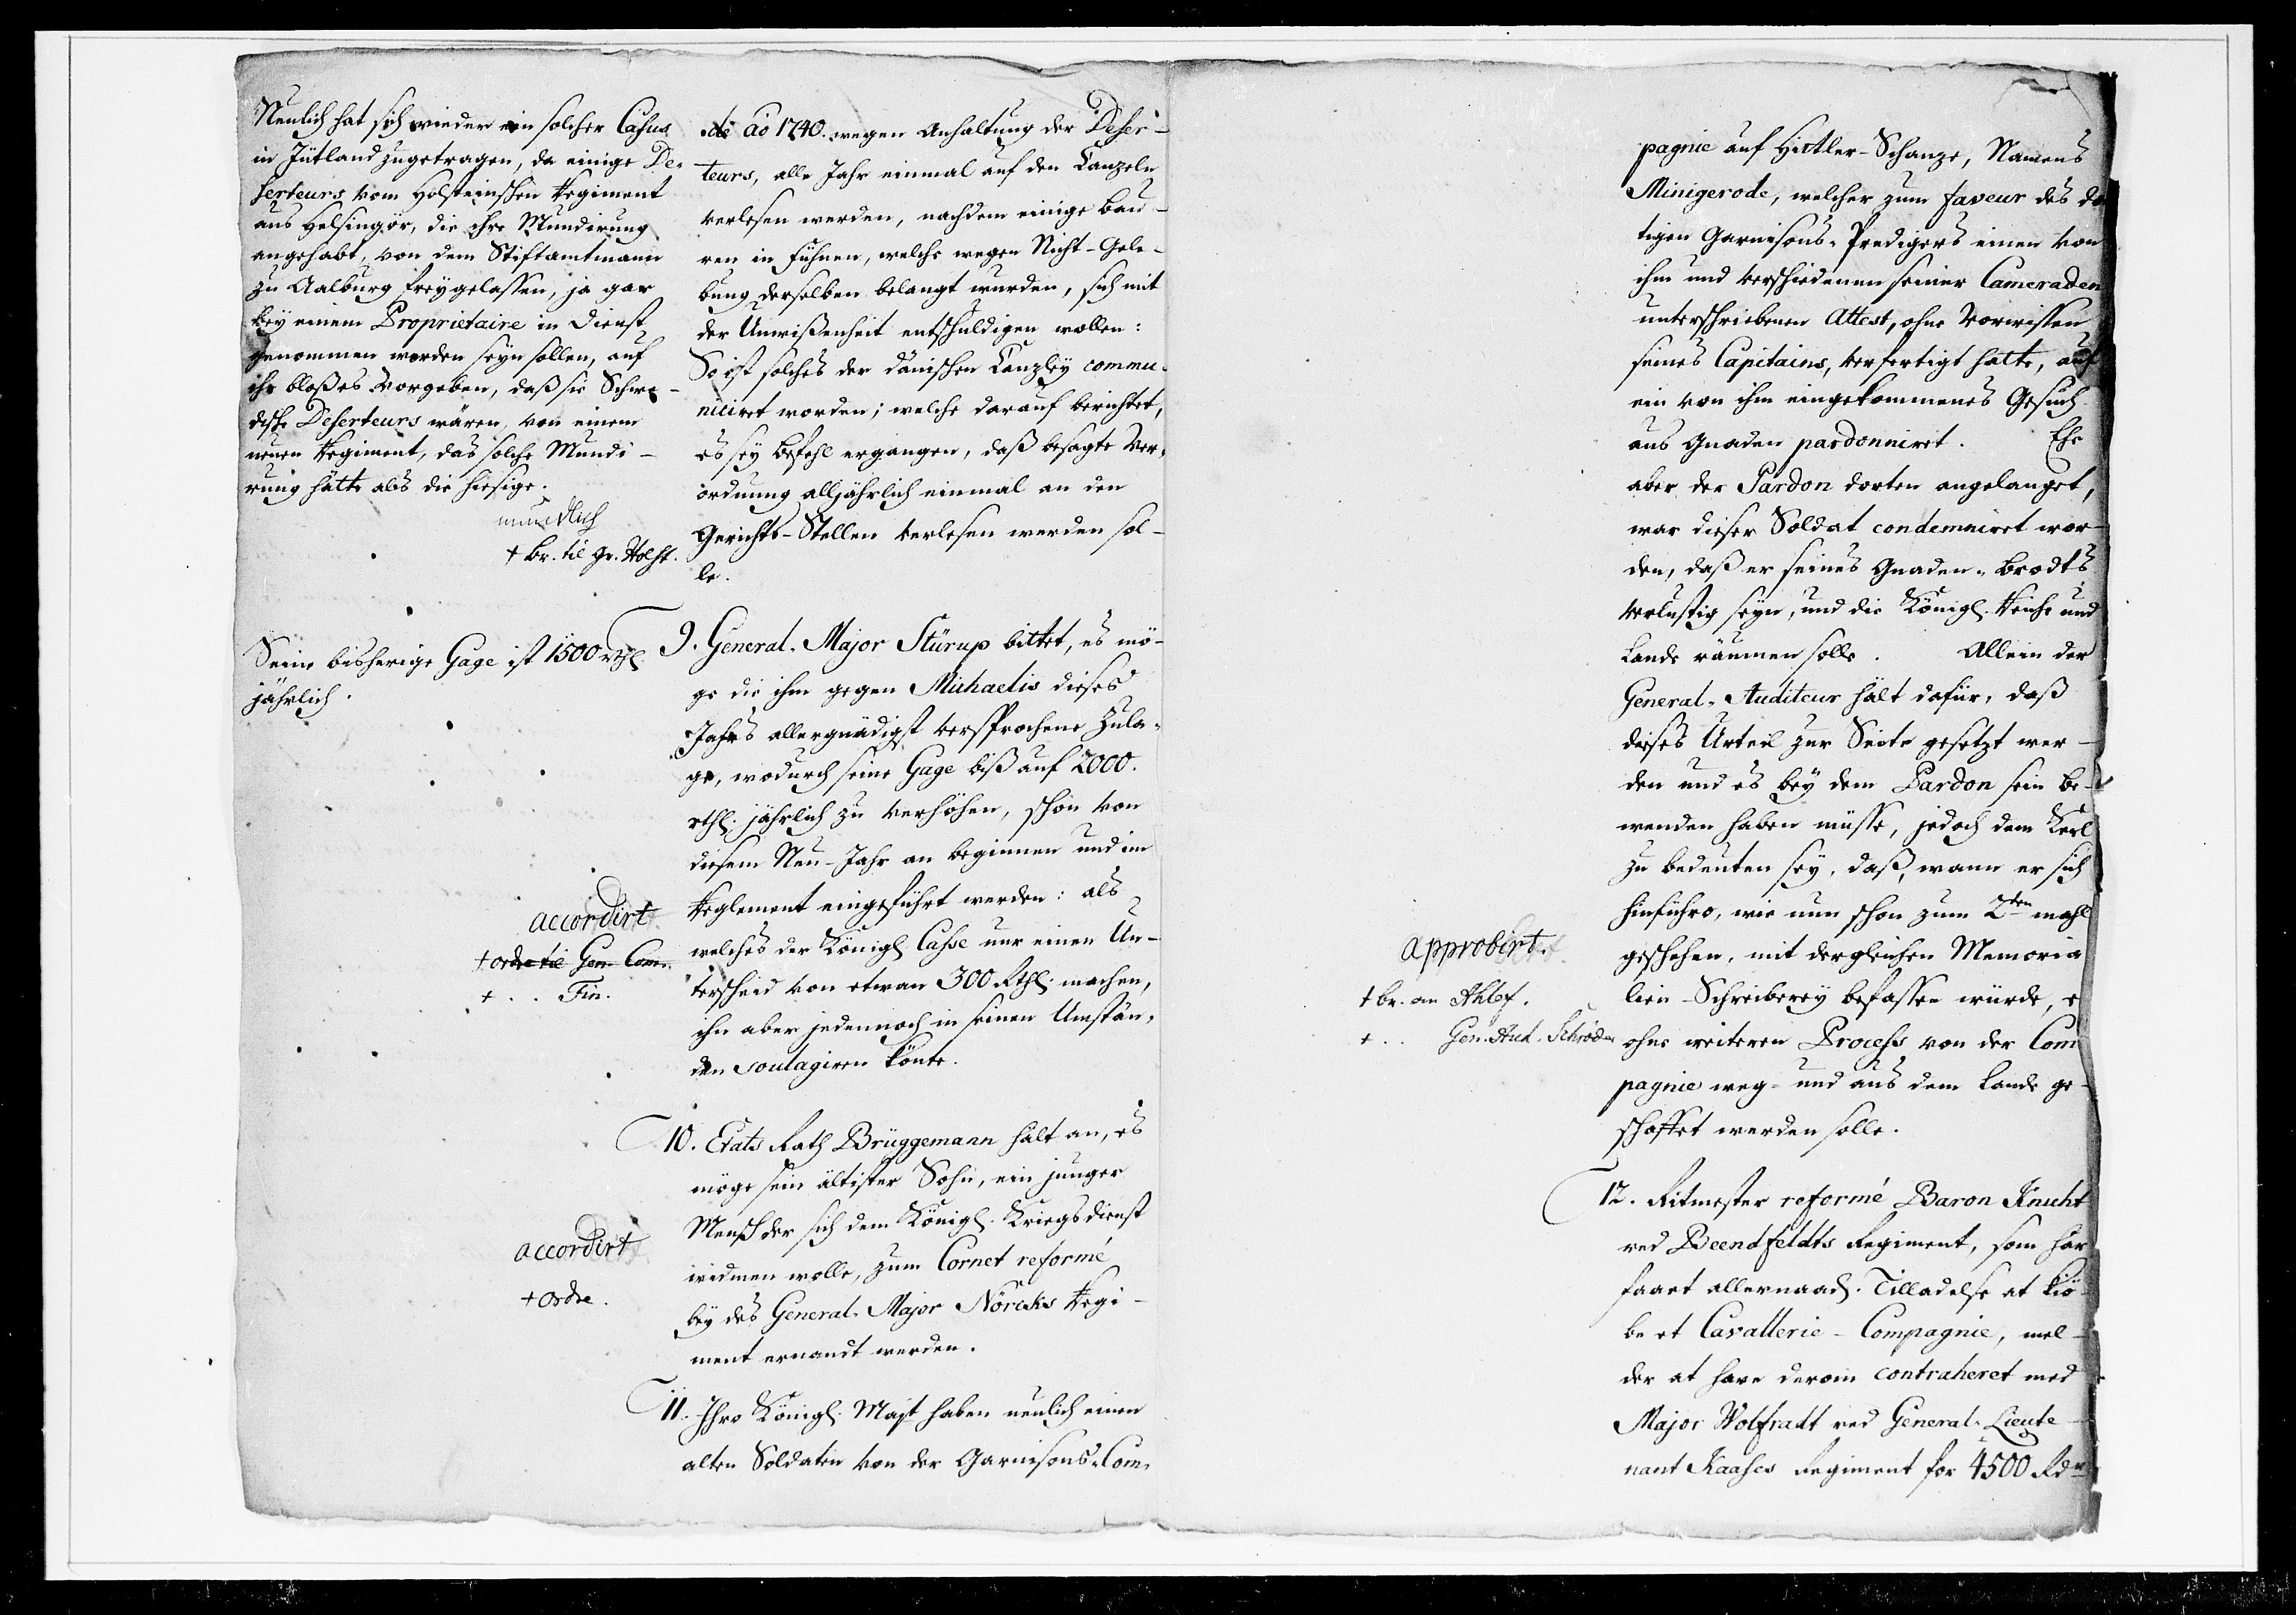 Neulich hat sich wieder ein solcher Casus
in Jütland zugetragen, da einige De-
serteurs vom Holsteinschen Regiment
aus Helsingör, die ihre Mundirung
angehabt, von dem Stiftamtmann
zu Aalburg freygelassen, ja gar
bey einem Proprietaire in Dienst
genommen worden seyn sollen, auf
ihr bloßes Vorgeben, daß sie Schwe-
dische Deserteurs wären, von einem
neuen Regiment, das solche Mundi-
rung hätte als die hiesige.
mundtlich
+ br. til Gr. Holst.
de ao 1740. wegen Anhaltung der Deser-
teurs, alle Jahr einmal auf den Canzeln
verlesen werden, nachdem einige Bau-
ren in Fühnen, welche wegen Nicht-Gele-
bung derselben belangt wurden, sich mit
der Unwißenheit entschuldigen wollen:
So ist solches der dänischen Canzley commu-
niciret worden; welche darauf berichtet,
es sey Befehl ergangen, daß besagte Ver-
ordnung alljährlich einmal an den
Gerichts-Stellen verlesen werden sol-
le.
Seine bisherige Gage ist 1500 rthl
jährlich.
9. General-Major Stürup bittet, es mö-
ge die ihm gegen Michaelis dieses
Jahrs allergnädigst versprochene Zula-
ge, wodurch seine Gage biß auf 2000.
rthl. jährlich zu verhöhen, schon von
diesem Neu-Jahr an beginnen und im
Reglement eingeführt werden: als
welches der Königl Casse nur einen Un-
terscheid von etwan 300 Rthl. machen,
ihn aber jedennoch in seinen Umstän-
den soulagiren könte.
accordirt.
+ ordre til Gen. Com.
+ . . Fin.
10. Etats Rath Brüggemann hält an, es
möge sein ältister Sohn, ein junger
Mensch der sich dem Königl. Kriegsdienst
widmen wolle, zum Cornet reformé
bey des General-Major Nörcks Regi-
ment ernandt werden.
accordirt.
+ Ordre.
11. Ihro Königl. Majt haben neulich einen
alten Soldaten von der Garnisons-Com-
pagnie auf Hitler-Schanze, Namens
Minigerode, welcher zum faveur des do
tigen Garnisons-Predigers einen von
ihm und verschiedenen seiner Cameraden
unterschriebenen Attest, ohne Vorwissen
seines Capitains, verfertigt hatte, auf
ein von ihm eingekommenes Gesuch
aus Gnaden pardonniret. Ehe
aber der Pardon dorten angelanget,
war dieser Soldat condemniret wor-
den, daß er seines Gnaden-Brodts
verlustig seyn, und die Königl. Reiche und
Lande räumen solle. Allein der
General-Auditeur hält dafür, daß
dieses Urteil zur Seite gesetzt wer-
den und es bey dem Pardon sein be-
wenden haben müsse, jedoch dem Kerl
zu bedeuten sey, daß, wann er sich
hinführo, wie nun schon zum 2ten mahl
geschehen, mit dergleichen Memoria
lien-Schreiberey befassen würde, e
ohne weiteren Process von der Com
pagnie weg- und aus dem Lande ge-
schaffet werden solle.
approbirt.
+ br. an Ahlef.
+ . . Gen. Aud. Schröder
12. Ritmester reformé Baron Knuht
ved Beenfeldts Regiment, som har
faaet allernaad. Tilladelse at kiö-
be et Cavallerie-Compagnie, mel-
der at have derom contraheret med
Major Wolfradt ved General-Lieute-
nant Kaases Regiment for 4500 Rdr